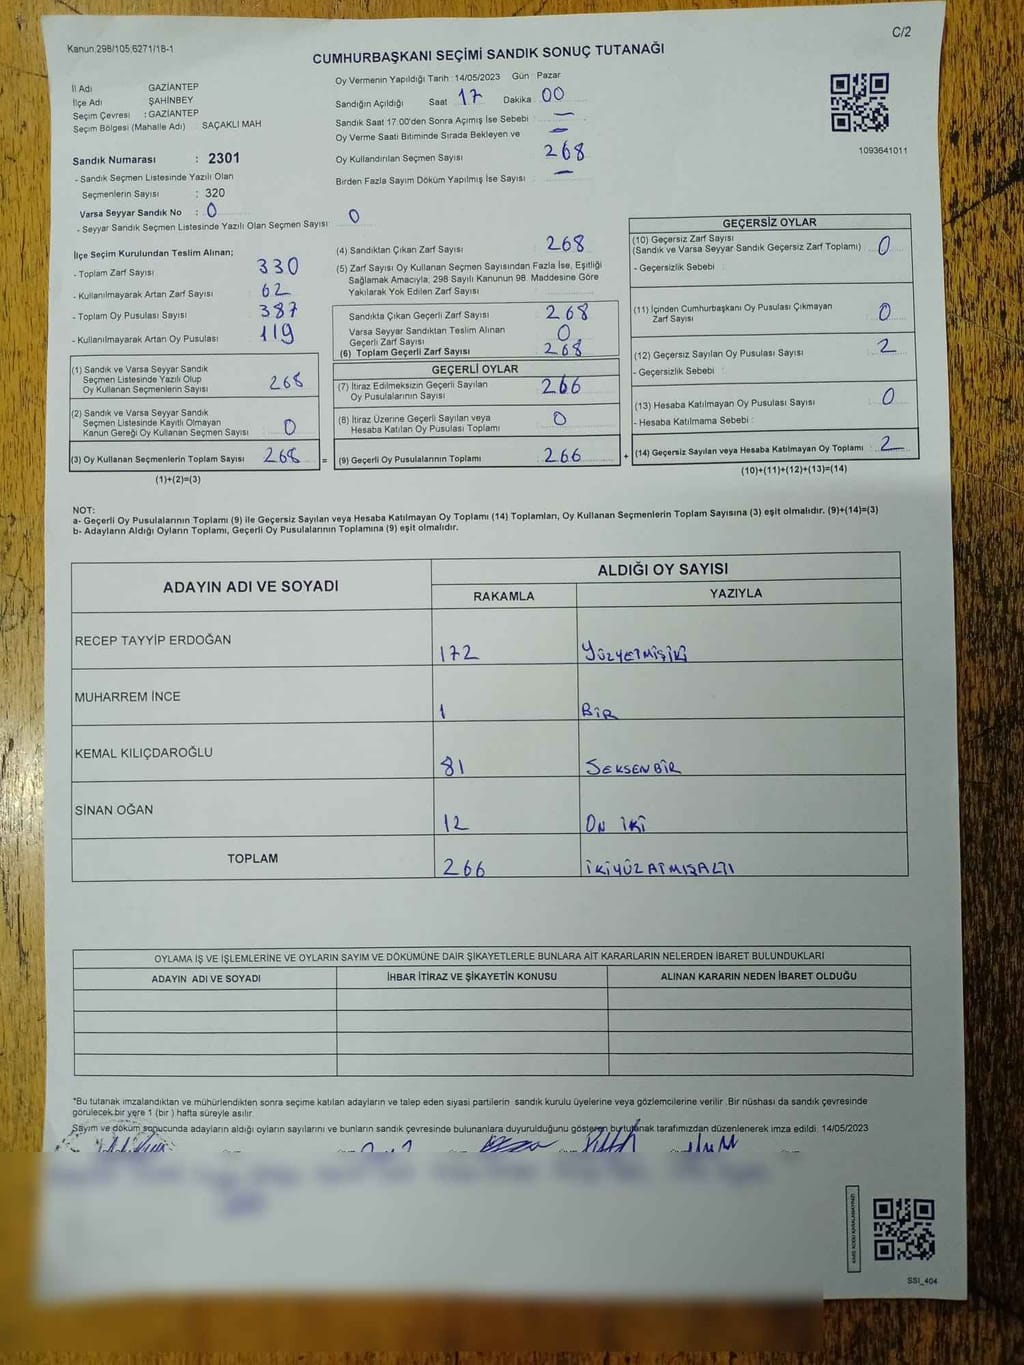 Kanun:298/105,6271/18-1
C/2
CUMHURBAŞKANI SEÇİMİ SANDIK SONUÇ TUTANAĞI
İl Adı GAZİANTEP
İlçe Adı ŞAHİNBEY
Seçim Çevresi : GAZİANTEP
Seçim Bölgesi (Mahalle Adı) SAÇAKLI MAH
Sandık Numarası : 2301
- Sandık Seçmen Listesinde Yazılı Olan
Seçmenlerin Sayısı : 320
Varsa Seyyar Sandık No : 0
- Seyyar Sandık Seçmen Listesinde Yazılı Olan Seçmen Sayısı: 0
Oy Vermenin Yapıldığı Tarih : 14/05/2023 Gün Pazar
Sandığın Açıldığı Saat 17 Dakika 00
Sandık Saat 17.00'den Sonra Açımış İse Sebebi : —
Oy Verme Saati Bitiminde Sırada Bekleyen ve —
Oy Kullandırılan Seçmen Sayısı 268
Birden Fazla Sayım Döküm Yapılmış İse Sayısı : —
1093641011
İlçe Seçim Kurulundan Teslim Alınan;
- Toplam Zarf Sayısı 330
- Kullanılmayarak Artan Zarf Sayısı 62
- Toplam Oy Pusulası Sayısı 387
- Kullanılmayarak Artan Oy Pusulası 119
(1) Sandık ve Varsa Seyyar Sandık
Seçmen Listesinde Yazılı Olup
Oy Kullanan Seçmenlerin Sayısı 268
(2) Sandık ve Varsa Seyyar Sandık
Seçmen Listesinde Kayıtlı Olmayan
Kanun Gereği Oy Kullanan Seçmen Sayısı 0
(3) Oy Kullanan Seçmenlerin Toplam Sayısı 268 =
(1)+(2)=(3)
(4) Sandıktan Çıkan Zarf Sayısı 268
(5) Zarf Sayısı Oy Kullanan Seçmen Sayısından Fazla İse, Eşitliği
Sağlamak Amacıyla; 298 Sayılı Kanunun 98. Maddesine Göre
Yakılarak Yok Edilen Zarf Sayısı
Sandıkta Çıkan Geçerli Zarf Sayısı 268
Varsa Seyyar Sandıktan Teslim Alınan
Geçerli Zarf Sayısı 0
(6) Toplam Geçerli Zarf Sayısı 268
GEÇERLİ OYLAR
(7) İtiraz Edilmeksizin Geçerli Sayılan
Oy Pusulalarının Sayısı 266
(8) İtiraz Üzerine Geçerli Sayılan veya
Hesaba Katılan Oy Pusulası Toplamı 0
(9) Geçerli Oy Pusulalarının Toplamı 266 +
GEÇERSİZ OYLAR
(10) Geçersiz Zarf Sayısı
(Sandık ve Varsa Seyyar Sandık Geçersiz Zarf Toplamı) 0
- Geçersizlik Sebebi :
(11) İçinden Cumhurbaşkanı Oy Pusulası Çıkmayan
Zarf Sayısı 0
(12) Geçersiz Sayılan Oy Pusulası Sayısı 2
- Geçersizlik Sebebi :
(13) Hesaba Katılmayan Oy Pusulası Sayısı 0
- Hesaba Katılmama Sebebi :
(14) Geçersiz Sayılan veya Hesaba Katılmayan Oy Toplamı : 2
(10)+(11)+(12)+(13)=(14)
NOT:
a- Geçerli Oy Pusulalarının Toplamı (9) ile Geçersiz Sayılan veya Hesaba Katılmayan Oy Toplamı (14) Toplamları, Oy Kullanan Seçmenlerin Toplam Sayısına (3) eşit olmalıdır. (9)+(14)=(3)
b- Adayların Aldığı Oyların Toplamı, Geçerli Oy Pusulalarının Toplamına (9) eşit olmalıdır.
ADAYIN ADI VE SOYADI
ALDIĞI OY SAYISI
RAKAMLA YAZIYLA
RECEP TAYYİP ERDOĞAN 172 YÜZYETMİŞİKİ
MUHARREM İNCE 1 BİR
KEMAL KILIÇDAROĞLU 81 SEKSENBİR
SİNAN OĞAN 12 ON İKİ
TOPLAM 266 İKİYÜZATMIŞALTI
OYLAMA İŞ VE İŞLEMLERİNE VE OYLARIN SAYIM VE DÖKÜMÜNE DAİR ŞİKAYETLERLE BUNLARA AİT KARARLARIN NELERDEN İBARET BULUNDUKLARI
ADAYIN ADI VE SOYADI İHBAR İTİRAZ VE ŞİKAYETİN KONUSU ALINAN KARARIN NEDEN İBARET OLDUĞU
*Bu tutanak imzalandıktan ve mühürlendikten sonra seçime katılan adayların ve talep eden siyasi partilerin sandık kurulu üyelerine veya gözlemcilerine verilir. Bir nüshası da sandık çevresinde
görülecek bir yere 1 (bir ) hafta süreyle asılır.
Sayım ve döküm sonucunda adayların aldığı oyların sayılarını ve bunların sandık çevresinde bulunanlara duyurulduğunu gösteren bu tutanak tarafımızdan düzenlenerek imza edildi. 14/05/2023
SSI_404